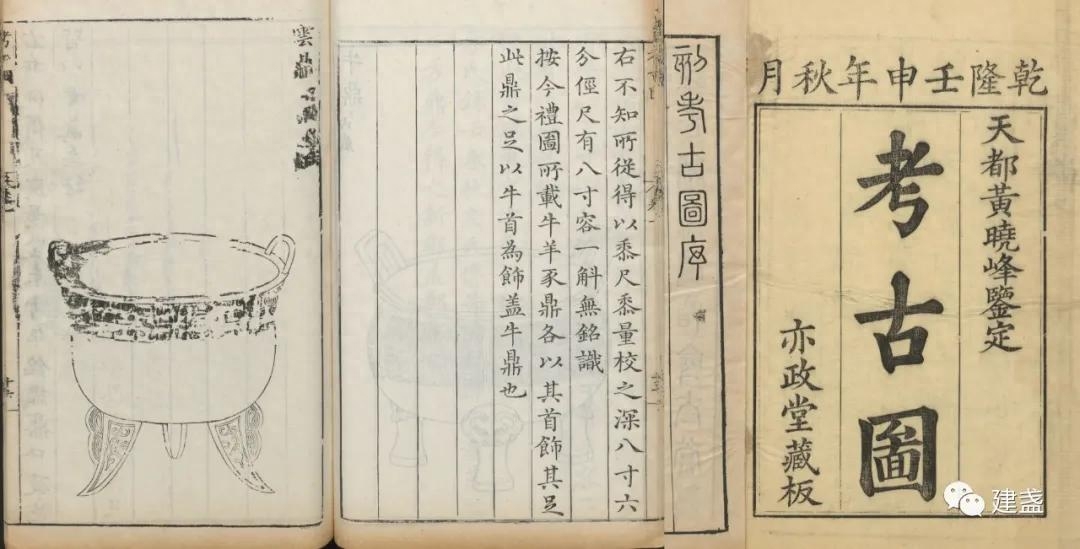 乾隆壬申年秋月
天都黃曉峰鑒定
考古圖
亦政堂藏板
考古圖序
右不知所從得以黍尺黍量校之深八寸六
分徑尺有八寸容一斛無銘識
按今禮圖所載牛羊豕鼎各以其首飾其足
此鼎之足以牛首為飾盖牛鼎也
雲鼎
建盏